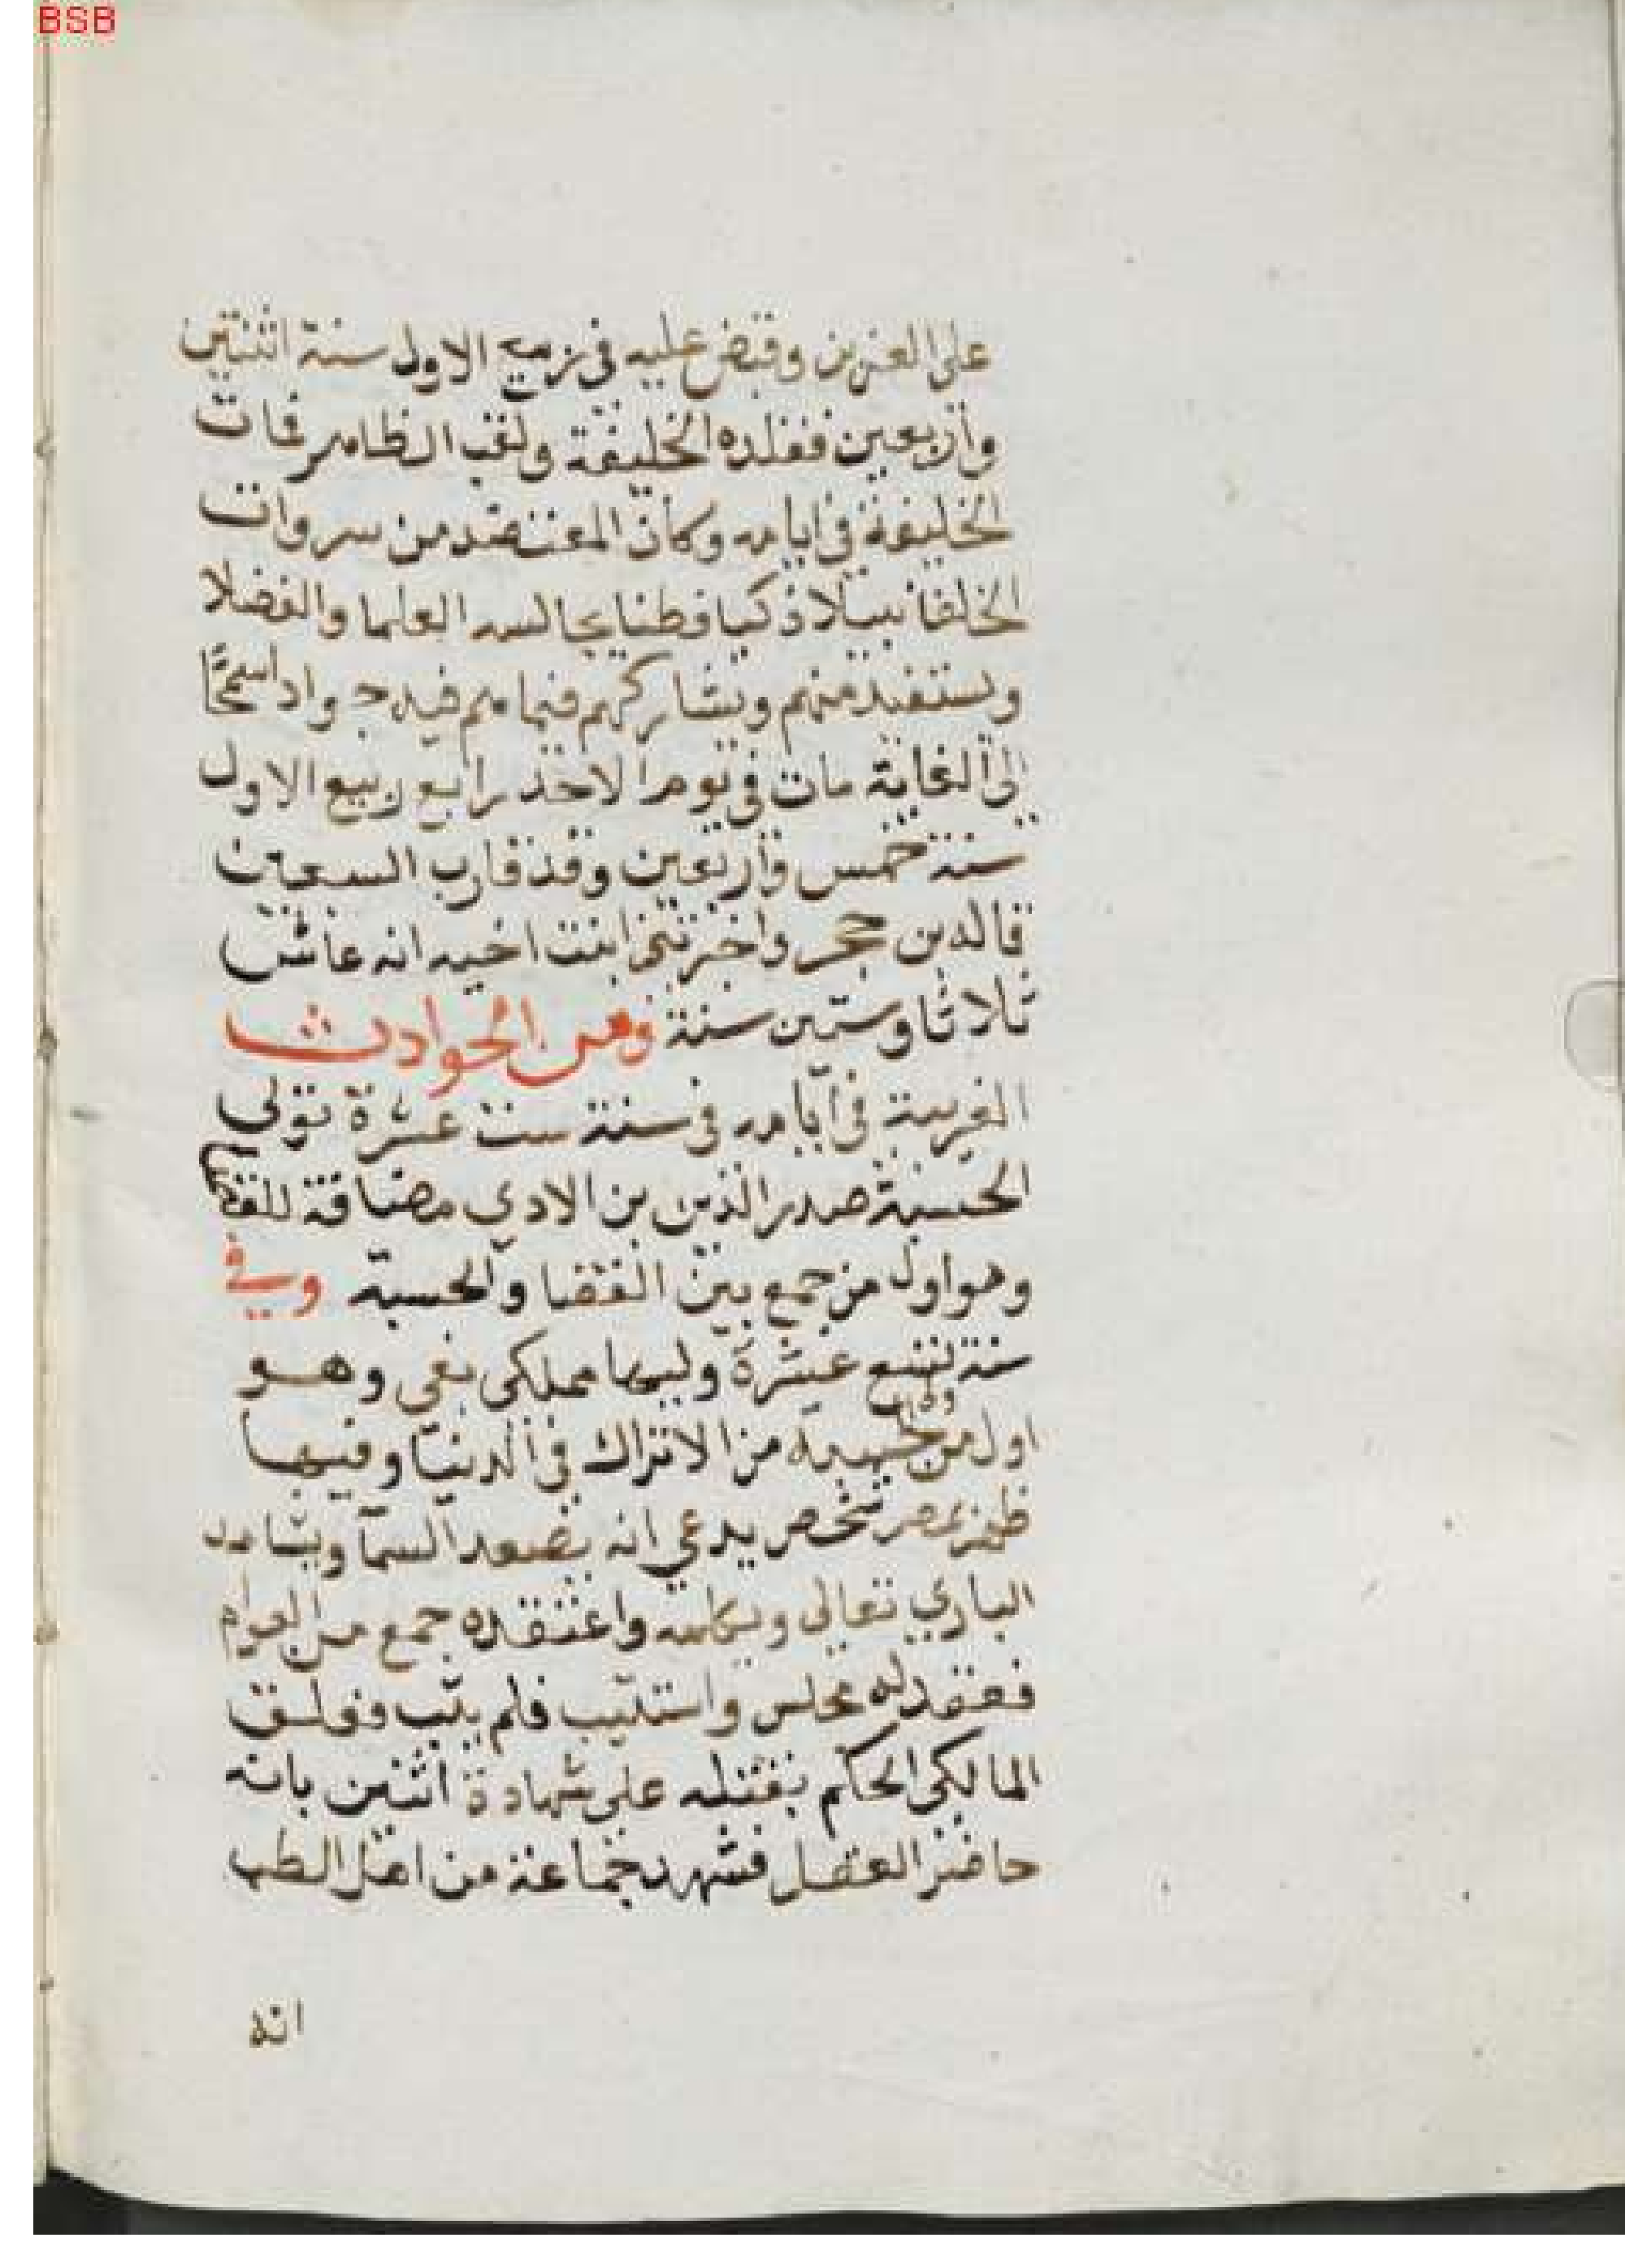 BSB
على العزيز وقبض عليه في ربيع الاول سنة اثنتين
واربعين فقلده الخليفة ولقب الظاهر فمات
الخليفة في ايامه وكان المعتضد من سروات
الخلفا نبيلا ذكيا فطنا يجالسه العلما والفضلا
ويستفيد منهم ويشاركهم فيما هم فيه جوادا سمحا
الى الغاية مات في يوم الاحد رابع ربيع الاول
سنة خمس واربعين وقد قارب السبعين
قاله بن حجر واخبرتني ابنت اخيه انه عاش
ثلاثا وستين سنة ومن الحوادث
الغريبة في ايامه في سنة ست عشرة تولى
الحسبة صدر الدين بن الادمي مضافة للقضا
وهو اول من جمع بين القضا والحسبة وفي
سنة تسع عشرة وليها منكلي بغي وهو
اول من ولي الحسبة من الاتراك في الدنيا وفيها
ظهر بمصر شخص يدعي انه يصعد السما ويشاهد
الباري تعالى ويكلمه واعتقده جمع من العوام
فعقد له مجلس واستتيب فلم يتب فعلق
المالكي الحكم بقتله على شهادة اثنين بانه
حاضر العقل فشهد جماعة من اهل الطب
انه